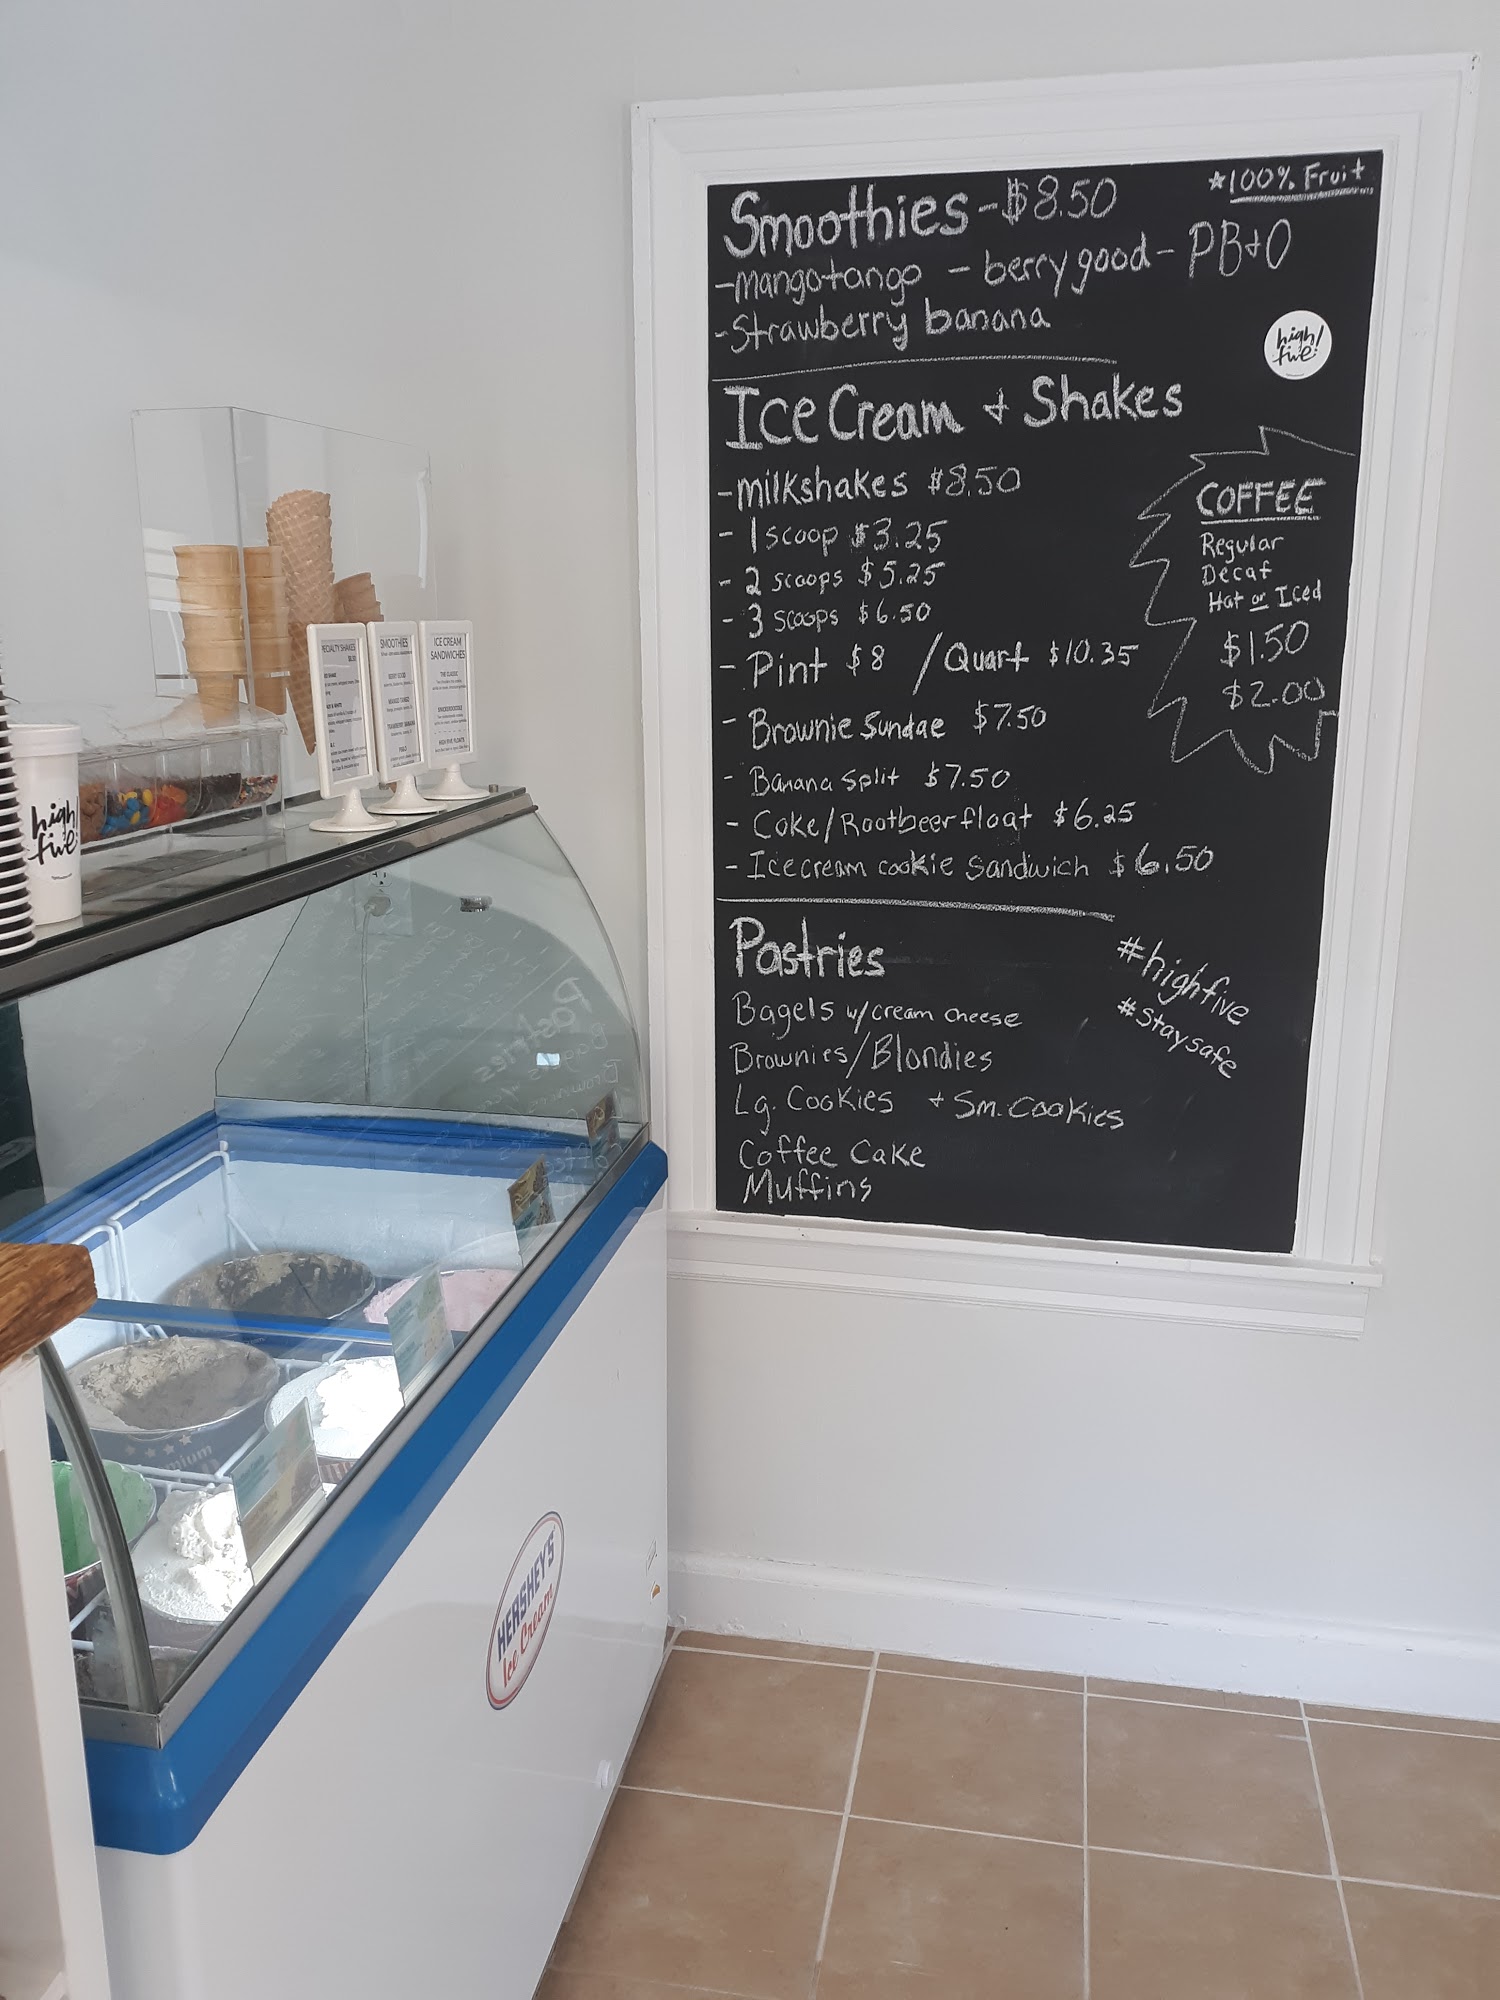 Smoothies - $8.50
★100% Fruit
- mango tango - berry good - PB+O
- Strawberry banana
high/
five:
Ice Cream + Shakes
- milkshakes $8.50
- 1 scoop $3.25
- 2 scoops $5.25
- 3 scoops $6.50
- Pint $8 / Quart $10.35
- Brownie Sundae $7.50
- Banana Split $7.50
- Coke/Rootbeer float $6.25
- Icecream cookie Sandwich $6.50
COFFEE
Regular
Decaf
Hot or Iced
$1.50
$2.00
Pastries
Bagels w/cream cheese
Brownies/Blondies
Lg. Cookies + Sm. Cookies
Coffee Cake
Muffins
#highfive
#staysafe
SMOOTHIES
BERRY GOOD
MANGO TANGO
STRAWBERRY BANANA
PB&O
ICE CREAM
SANDWICHES
THE CLASSIC
SNICKERDOODLE
HIGH FIVE FLOATS
high/
five:
HERSHEY'S
Ice Cream